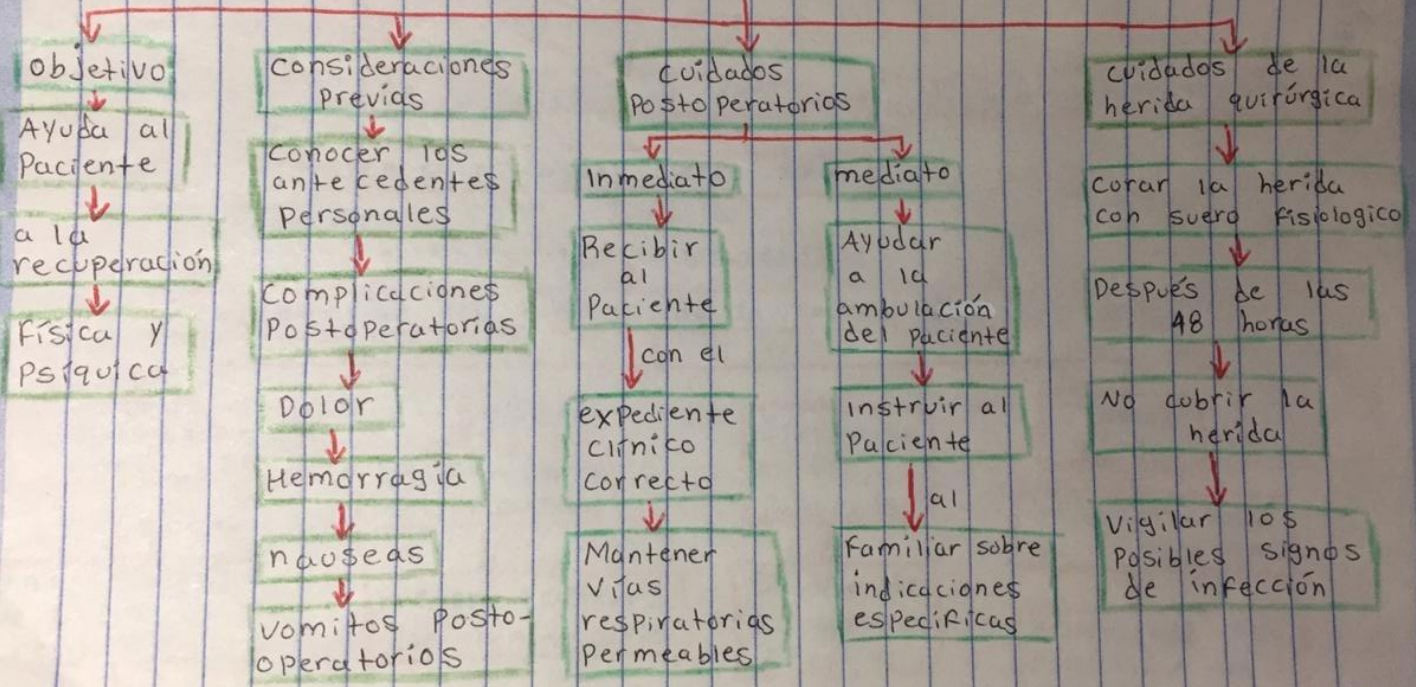 objetivo
Ayuda al
Paciente
a la
recuperación
Física y
Psíquica
consideraciones
Previas
Conocer los
antecedentes
Personales
Complicaciones
Postoperatorias
Dolor
Hemorragia
nauseas
vomitos Posto-
operatorios
cuidados
Postoperatorios
Inmediato
Recibir
al
Paciente
con el
expediente
Clínico
Correcto
Mantener
Vías
respiratorias
Permeables
mediato
Ayudar
a la
ambulación
del Paciente
Instruir al
Paciente
al
Familiar sobre
indicaciones
especificas
cuidados de la
herida quirúrgica
Curar la herida
con suero Fisiologico
Después de las
48 horas
No cubrir la
herida
Vigilar los
Posibles signos
de infección